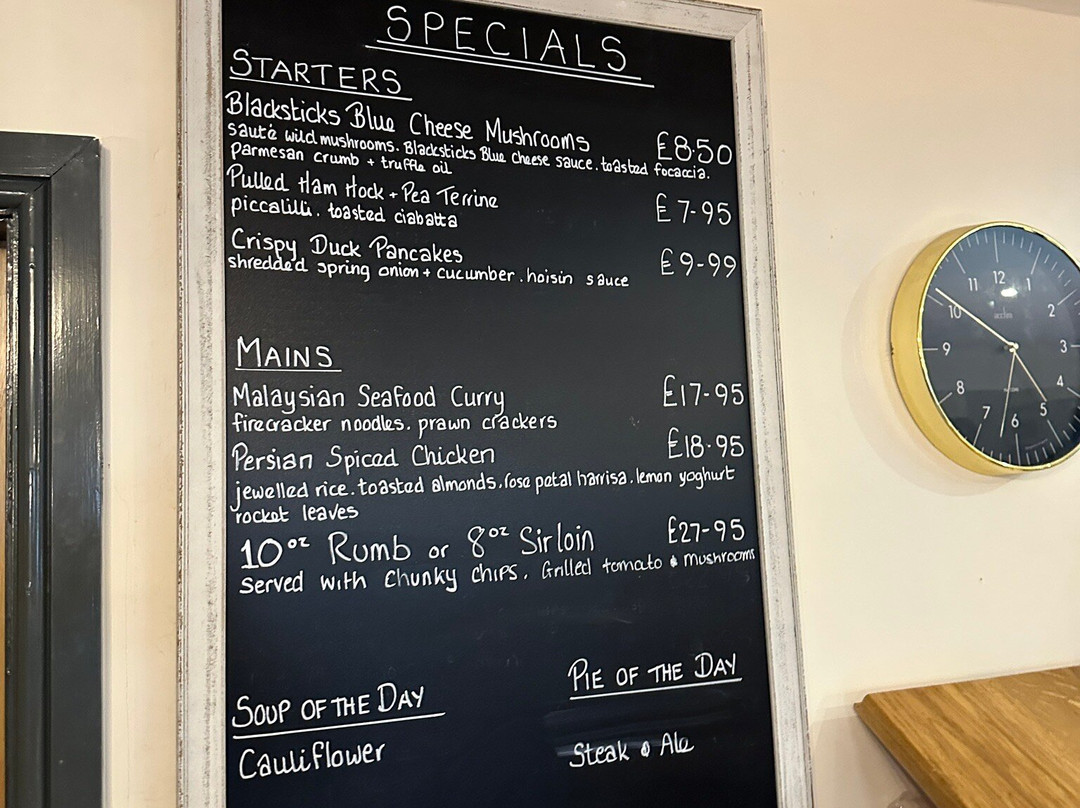 SPECIALS
STARTERS
Blacksticks Blue Cheese Mushrooms £8.50
sauté wild mushrooms. Blacksticks Blue cheese sauce. toasted focaccia.
Parmesan crumb + truffle oil
Pulled Ham Hock + Pea Terrine £7-95
piccalilli. toasted ciabatta
Crispy Duck Pancakes £9-99
shredded spring onion + cucumber. hoisin sauce
MAINS
Malaysian Seafood Curry £17-95
firecracker noodles. prawn crackers
Persian Spiced Chicken £18.95
jewelled rice. toasted almonds. rose petal harrisa. lemon yoghurt
rocket leaves
10oz Rumb or 8oz Sirloin £27-95
Served with Chunky Chips. Grilled tomato & mushrooms
SOUP OF THE DAY
Cauliflower
PIE OF THE DAY
Steak & Ale
12
1
2
3
4
5
6
7
8
9
10
11
acctim